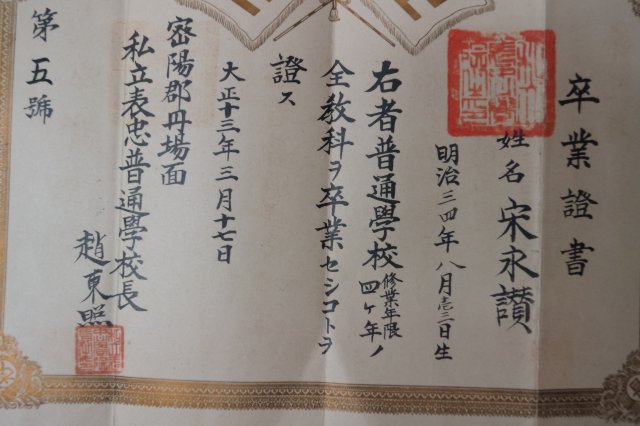 卒業證書
姓名 宋永讚
明治三四年八月壱三日生
右者普通學校修業年限四ケ年ノ
全教科ヲ卒業セシコトヲ
證ス
大正十三年三月十七日
密陽郡丹場面
私立表忠普通學校長
趙東熙
第五號